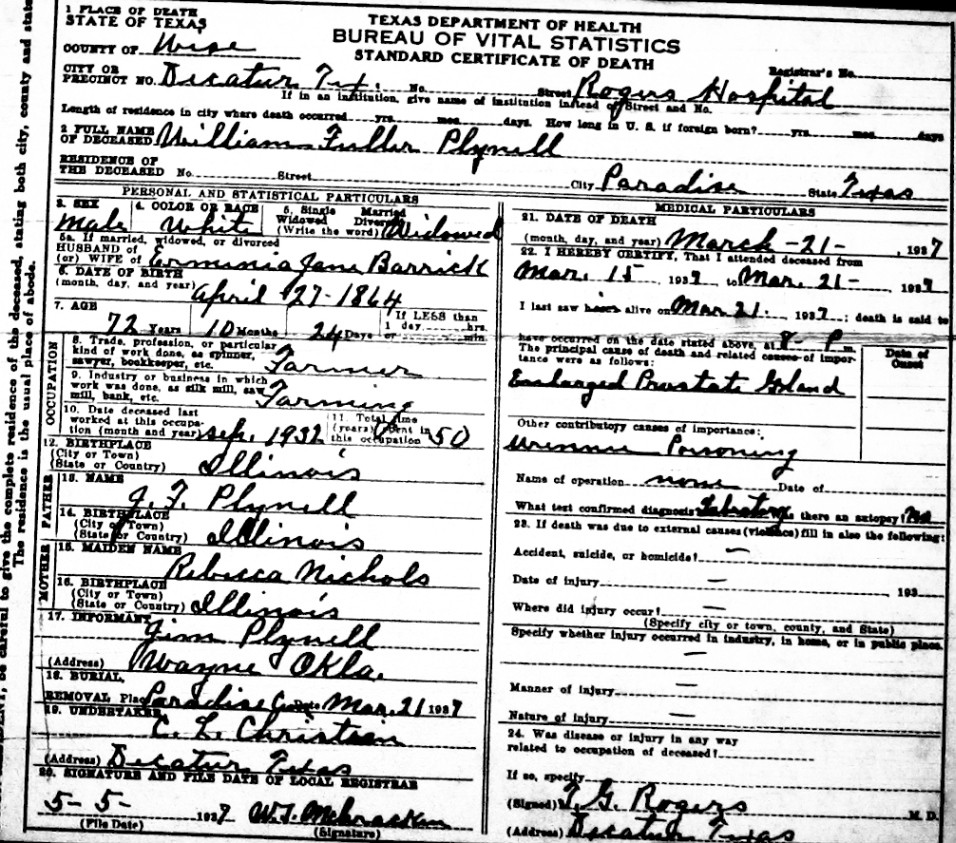 1 PLACE OF DEATH
STATE OF TEXAS
COUNTY OF Wise
TEXAS DEPARTMENT OF HEALTH
BUREAU OF VITAL STATISTICS
STANDARD CERTIFICATE OF DEATH
Registrar's No.
CITY OR PRECINCT NO. Decatur Tex. No. Street Rogers Hospital
If in an institution, give name of institution instead of Street and No.
Length of residence in city where death occurred yrs. mos. days. How long in U. S. if foreign born? yrs. mos. days
2 FULL NAME OF DECEASED William Fuller Plynell
RESIDENCE OF THE DECEASED No. Street City Paradise State Texas
PERSONAL AND STATISTICAL PARTICULARS
3. SEX Male 4. COLOR OR RACE White 5. Single Married Widowed Divorced (Write the word) Widowed
5a. If married, widowed, or divorced
HUSBAND OF (or) WIFE OF Erminia Jane Barrick
6. DATE OF BIRTH (month, day, and year) April 27-1864
7. AGE 72 Years 10 Months 24 Days If LESS than 1 day hrs. or min.
OCCUPATION
8. Trade, profession, or particular kind of work done, as spinner, sawyer, bookkeeper, etc. Farmer
9. Industry or business in which work was done, as silk mill, saw mill, bank, etc. Farming
10. Date deceased last worked at this occupation (month and year) Sep. 1932 11 Total time (years) spent in this occupation 50
12. BIRTHPLACE (City or Town) (State or Country) Illinois
FATHER
13. NAME J. F. Plynell
14. BIRTHPLACE (City or Town) (State or Country) Illinois
MOTHER
15. MAIDEN NAME Rebecca Nichols
16. BIRTHPLACE (City or Town) (State or Country) Illinois
17. INFORMANT Jim Plynell
(Address) Wayne Okla.
18. BURIAL, REMOVAL Place Paradise Date Mar. 21 1937
19. UNDERTAKER C. L. Christian
(Address) Decatur Texas
20. SIGNATURE AND FILE DATE OF LOCAL REGISTRAR
5-5- 1937 W. T. McCracken
(File Date) (Signature)
MEDICAL PARTICULARS
21. DATE OF DEATH
(month, day, and year) March -21- , 1937
22. I HEREBY CERTIFY, That I attended deceased from
Mar. 15 1937 to Mar. 21- 1937
I last saw him alive on Mar 21. 1937; death is said to
have occurred on the date stated above, at 8- P m.
The principal cause of death and related causes of importance were as follows:
Date of Onset
Enlarged Prostate Gland
Other contributory causes of importance:
Poisoning
Name of operation none Date of
What test confirmed diagnosis Labratory Was there an autopsy? No
23. If death was due to external causes (violence) fill in also the following:
Accident, suicide, or homicide? —
Date of injury — 193
Where did injury occur? —
(Specify city or town, county, and State)
Specify whether injury occurred in industry, in home, or in public place.
—
Manner of injury —
Nature of injury —
24. Was disease or injury in any way related to occupation of deceased?
If so, specify
(Signed) T. G. Rogers M. D.
(Address) Decatur Texas
be careful to give the complete residence of the deceased, stating both city, county and state
The residence is the usual place of abode.